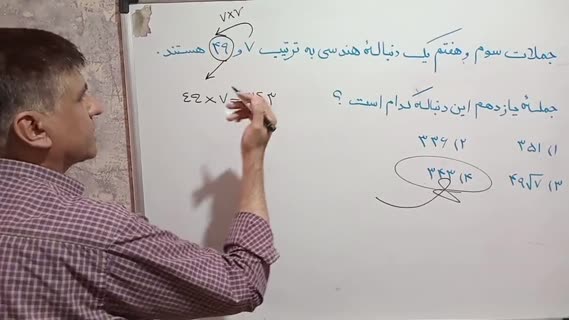 ۷×۷
جملات سوم و هفتم یک دنبالهٔ هندسی به ترتیب ۷ و ۴۹ هستند.
۴۹ × ۷ = ۳۴۳
جملهٔ یازدهم این دنباله کدام است ؟
۱) ۳۵۱ ۲) ۳۳۶
۳) ۴۹√۷ ۴) ۳۴۳